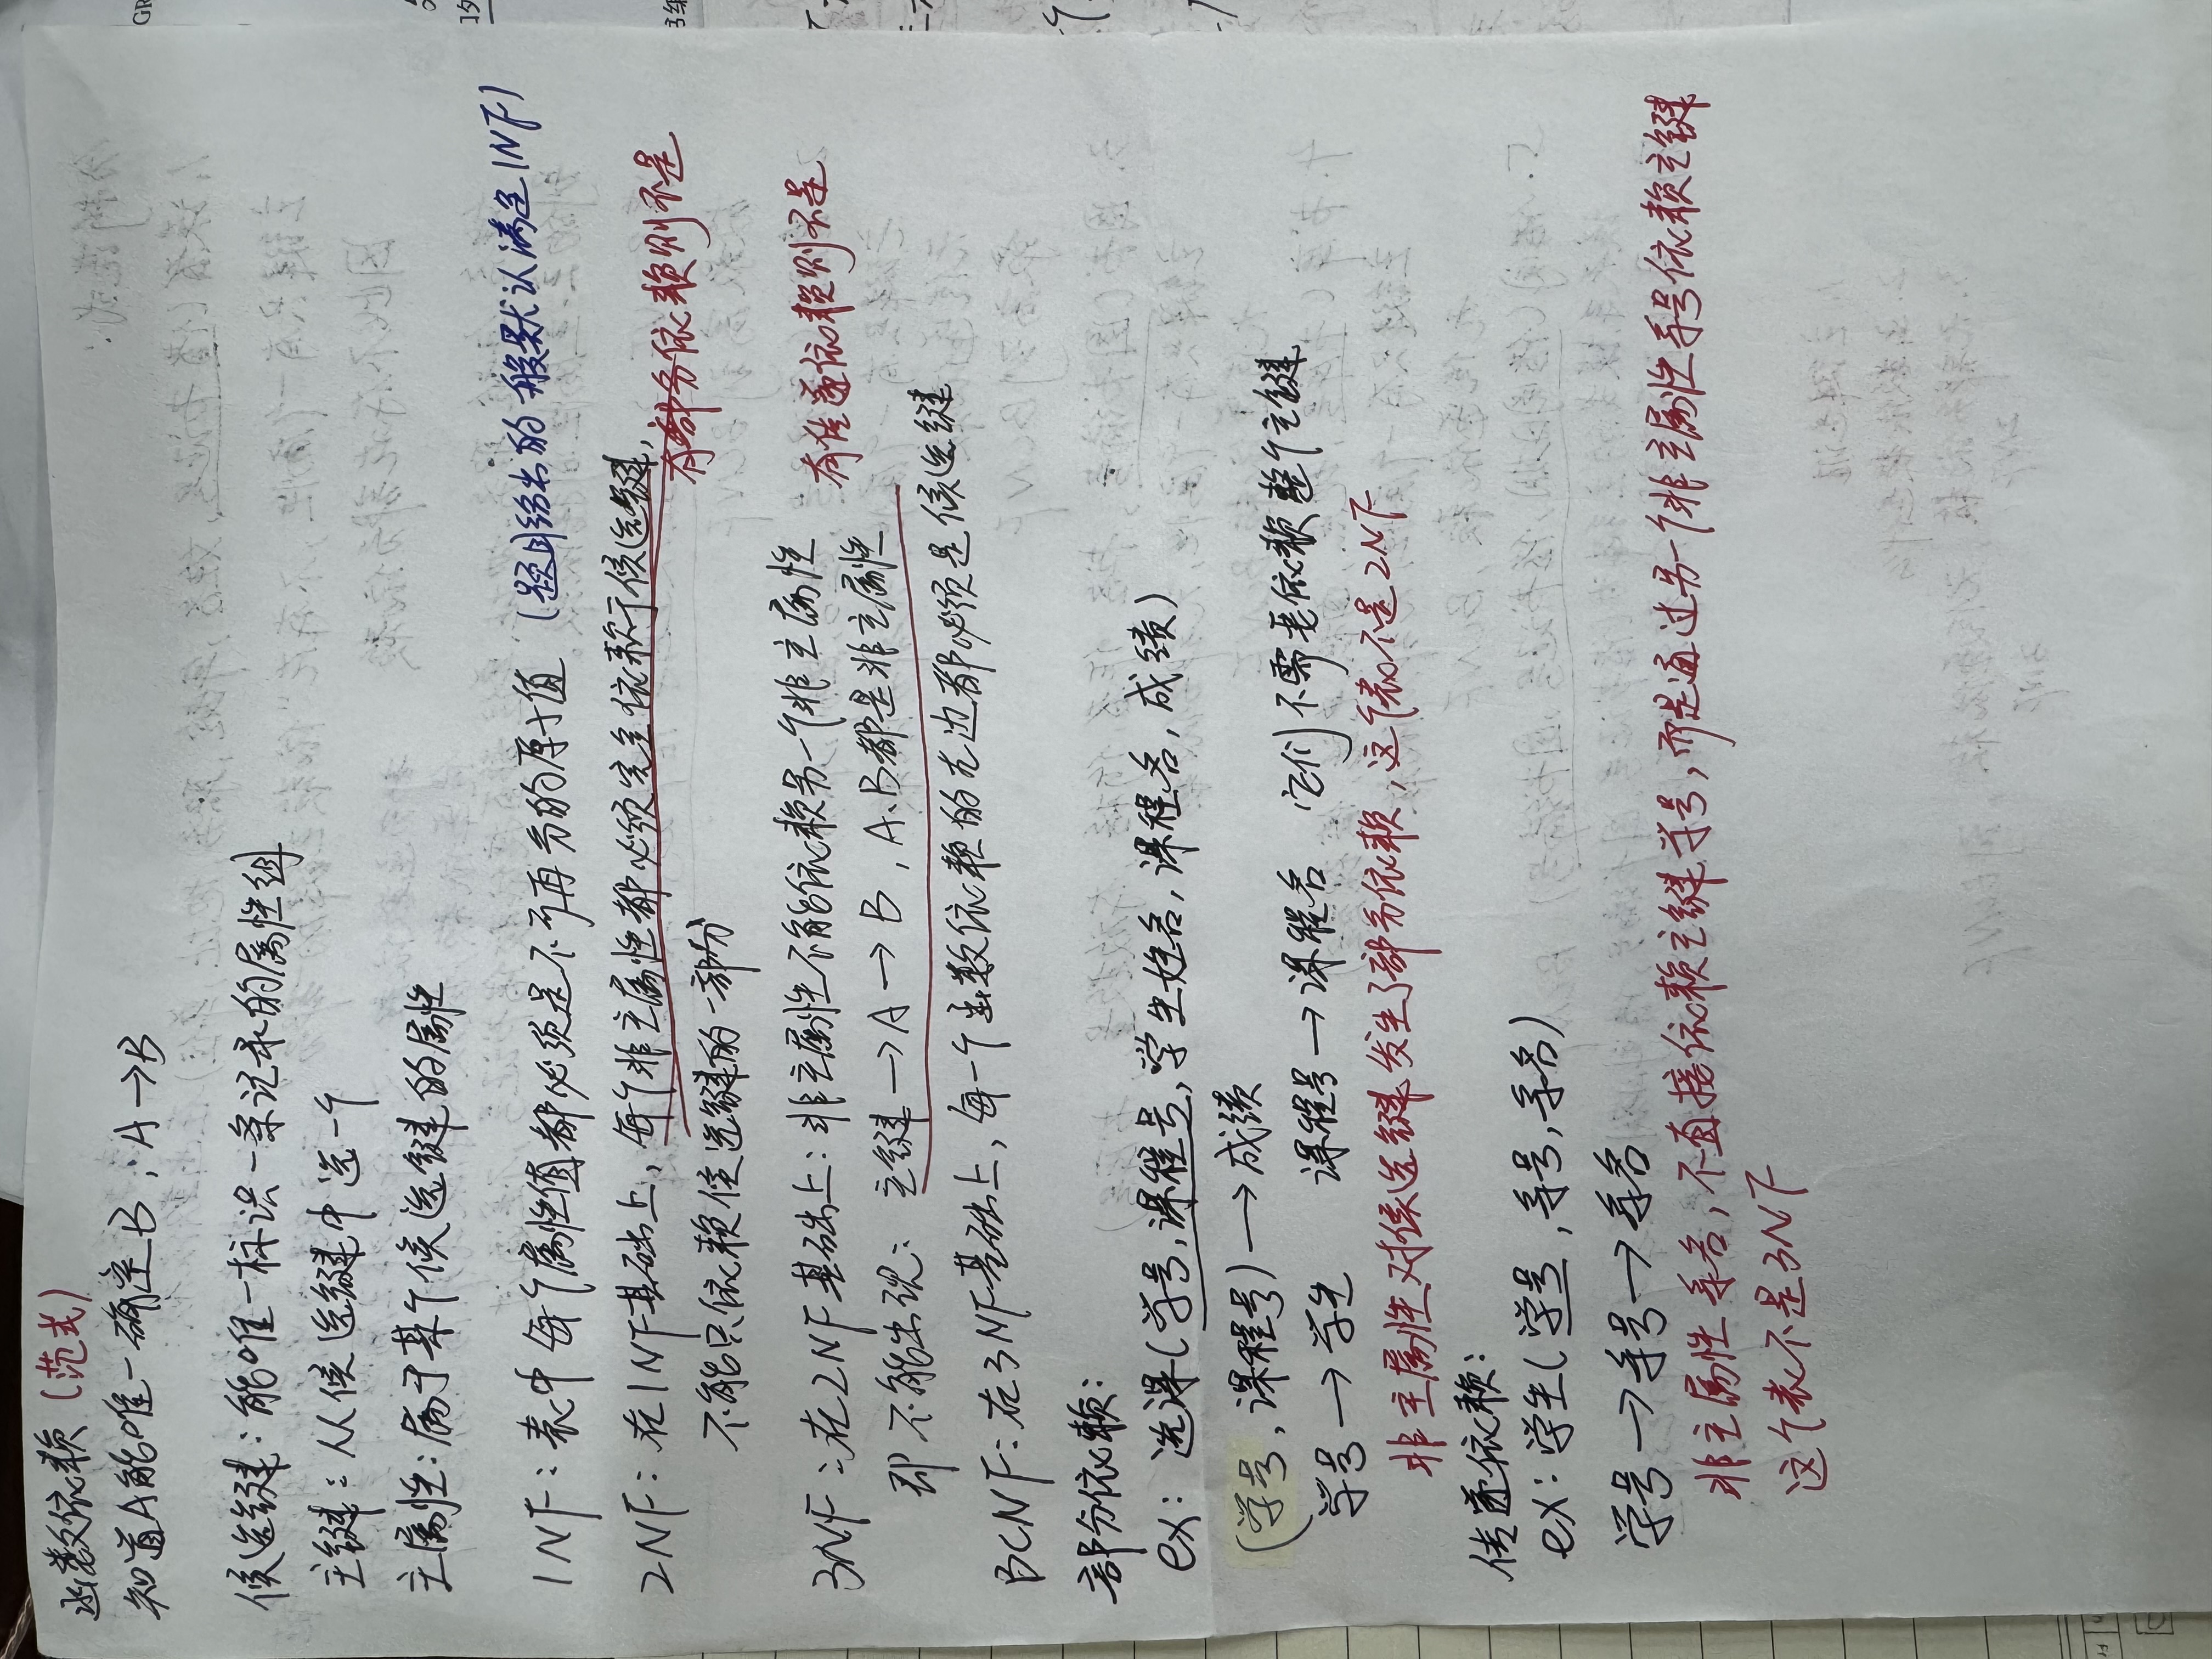 函数依赖 (范式)
知道A能唯一确定B:A→B
候选键:能唯一标识一条记录的属性组
主键:从候选键中选一个
主属性:属于某个候选键的属性
1NF:表中每个属性值都必须是不可再分的原子值 (题目给出的一般默认满足1NF)
2NF:在1NF基础上,每个非主属性都必须完全依赖于候选键, 有部分依赖则不是
不能只依赖候选键的一部份
3NF:在2NF基础上:非主属性不能依赖另一个非主属性 有传递依赖则不是
即不能出现:主键→A→B,A.B都是非主属性
BCNF:在3NF基础上,每一个函数依赖的左边都必须是候选键
部分依赖:
ex:选课(学号,课程号,学生姓名,课程名,成绩)
(学号,课程号)→成绩
学号→学生 课程号→课程名 它们不需要依赖整个主键
非主属性对候选键发生了部分依赖,这个表不是2NF
传递依赖:
ex:学生(学号,系号,系名)
学号→系号→系名
非主属性系名,不直接依赖主键学号,而是通过另一个非主属性系号依赖主键
这个表不是3NF